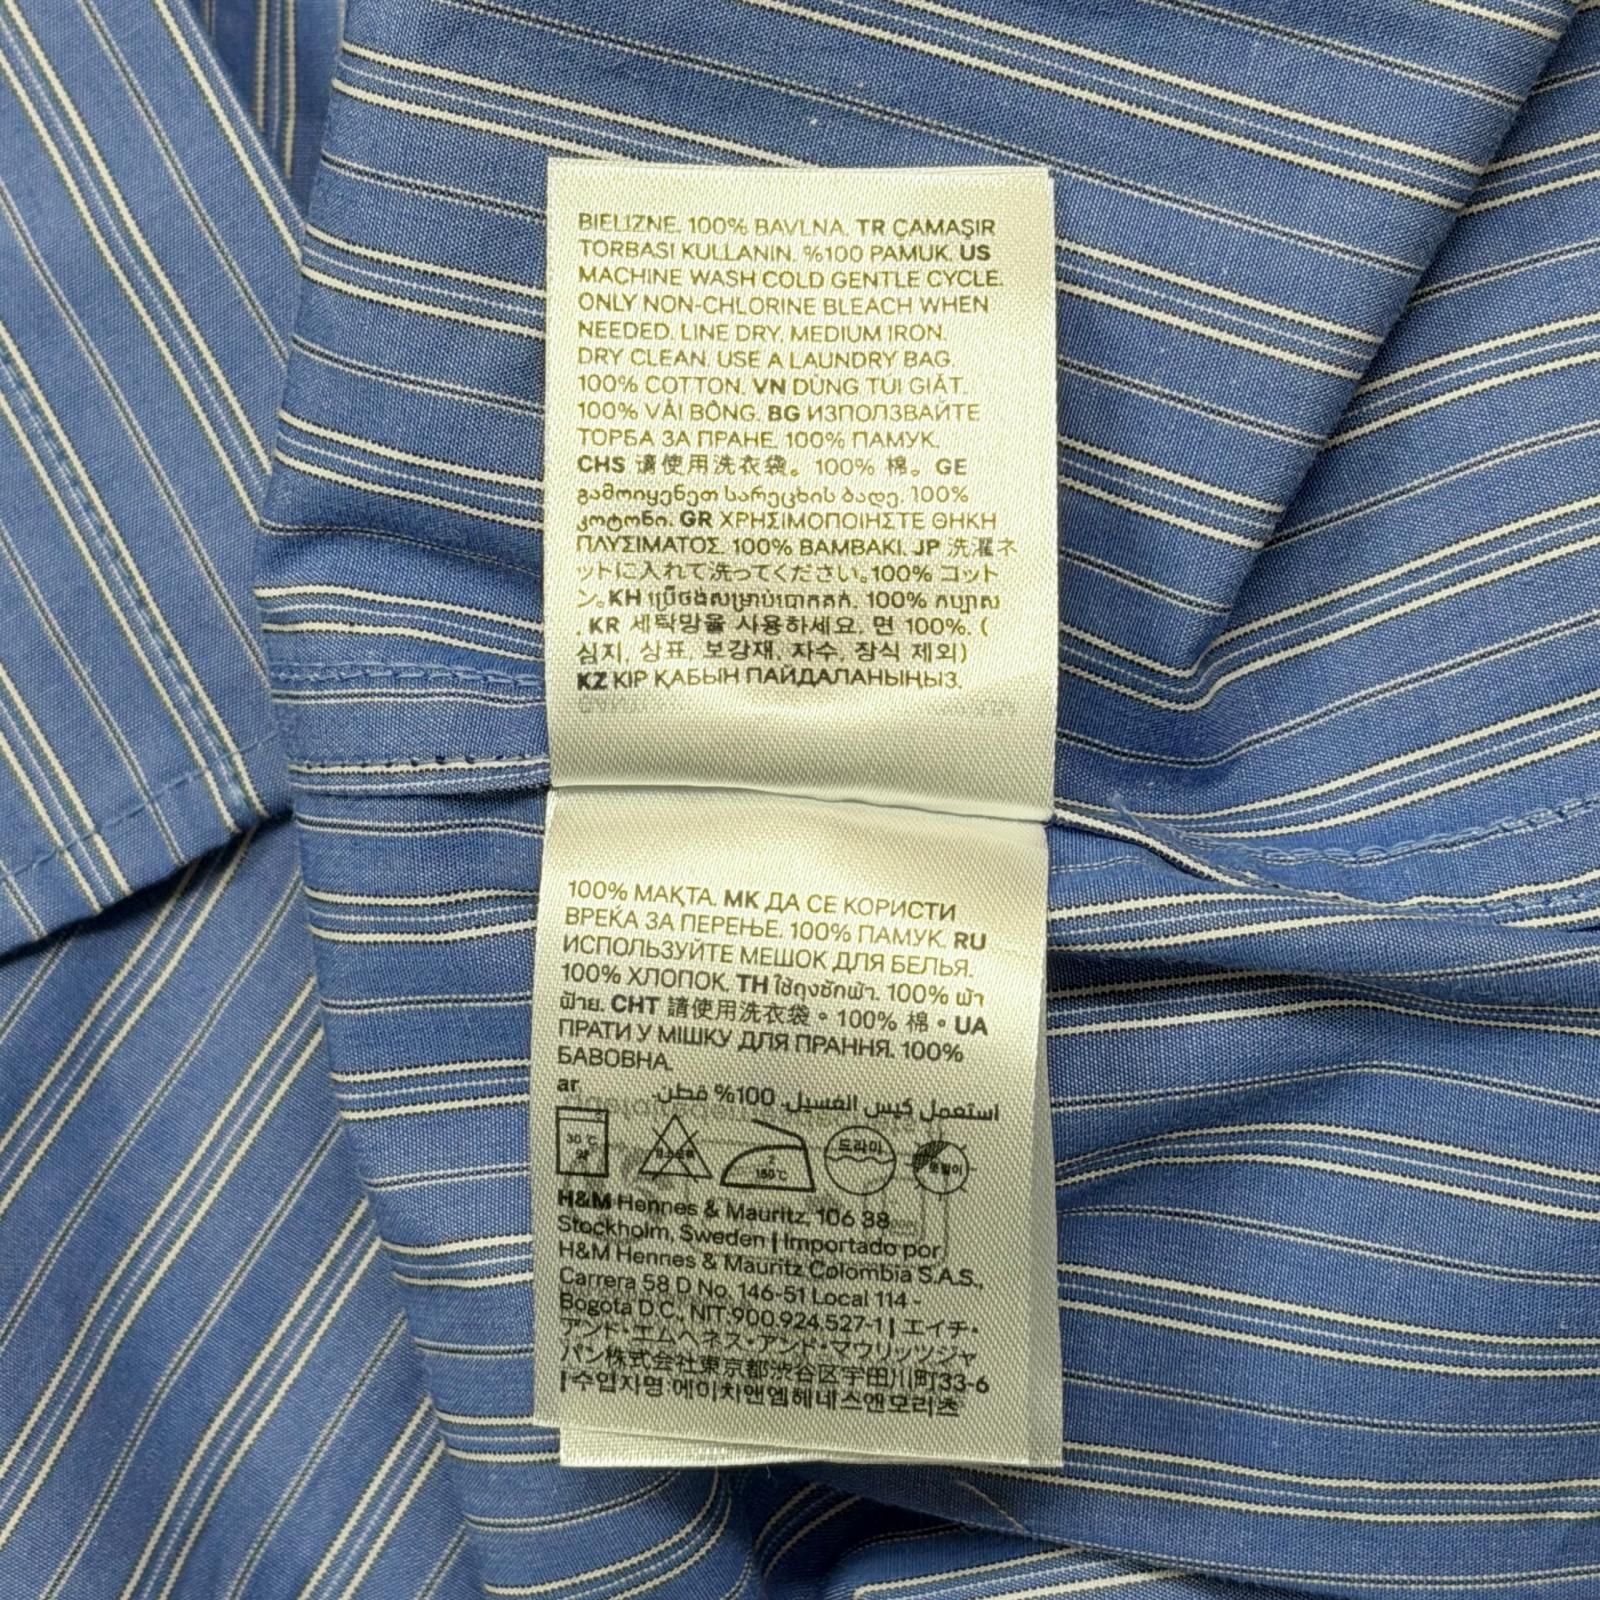 BIELIZNE. 100% BAVLNA. TR ÇAMAŞIR
TORBASI KULLANIN. %100 PAMUK. US
MACHINE WASH COLD GENTLE CYCLE.
ONLY NON-CHLORINE BLEACH WHEN
NEEDED. LINE DRY. MEDIUM IRON.
DRY CLEAN. USE A LAUNDRY BAG.
100% COTTON. VN DÙNG TÚI GIẶT.
100% VẢI BÔNG. BG ИЗПОЛЗВАЙТЕ
ТОРБА ЗА ПРАНЕ. 100% ПАМУК.
CHS 请使用洗衣袋。100% 棉。GE
გამოიყენეთ სარეცხის ბადე. 100%
კოტონი. GR ΧΡΗΣΙΜΟΠΟΙΗΣΤΕ ΘΗΚΗ
ΠΛΥΣΙΜΑΤΟΣ. 100% ΒΑΜΒΑΚΙ. JP 洗濯ネ
ットに入れて洗ってください。100% コット
ン。KH ប្រើថង់សម្រាប់បោកគក់. 100% កប្បាស
. KR 세탁망을 사용하세요. 면 100%. (
심지, 상표, 보강재, 자수, 장식 제외)
KZ КІР ҚАБЫН ПАЙДАЛАНЫҢЫЗ.
100% МАҚТА. MK ДА СЕ КОРИСТИ
ВРЕЌА ЗА ПЕРЕЊЕ. 100% ПАМУК. RU
ИСПОЛЬЗУЙТЕ МЕШОК ДЛЯ БЕЛЬЯ.
100% ХЛОПОК. TH ใช้ถุงซักผ้า. 100% ผ้า
ฝ้าย. CHT 請使用洗衣袋。100% 棉。UA
ПРАТИ У МІШКУ ДЛЯ ПРАННЯ. 100%
БАВОВНА.
ar
استعمل كيس الغسيل. 100% قطن.
30 °C
약
염소표백
2
160°C
드라이
옷걸이
H&M Hennes & Mauritz, 106 38
Stockholm, Sweden | Importado por
H&M Hennes & Mauritz Colombia S.A.S.,
Carrera 58 D No. 146-51 Local 114 -
Bogota D.C., NIT:900.924.527-1 | エイチ・
アンド・エムヘネス・アンド・マウリッツジャ
パン株式会社東京都渋谷区宇田川町33-6
| 수입자명:에이치앤엠헤네스앤모리츠